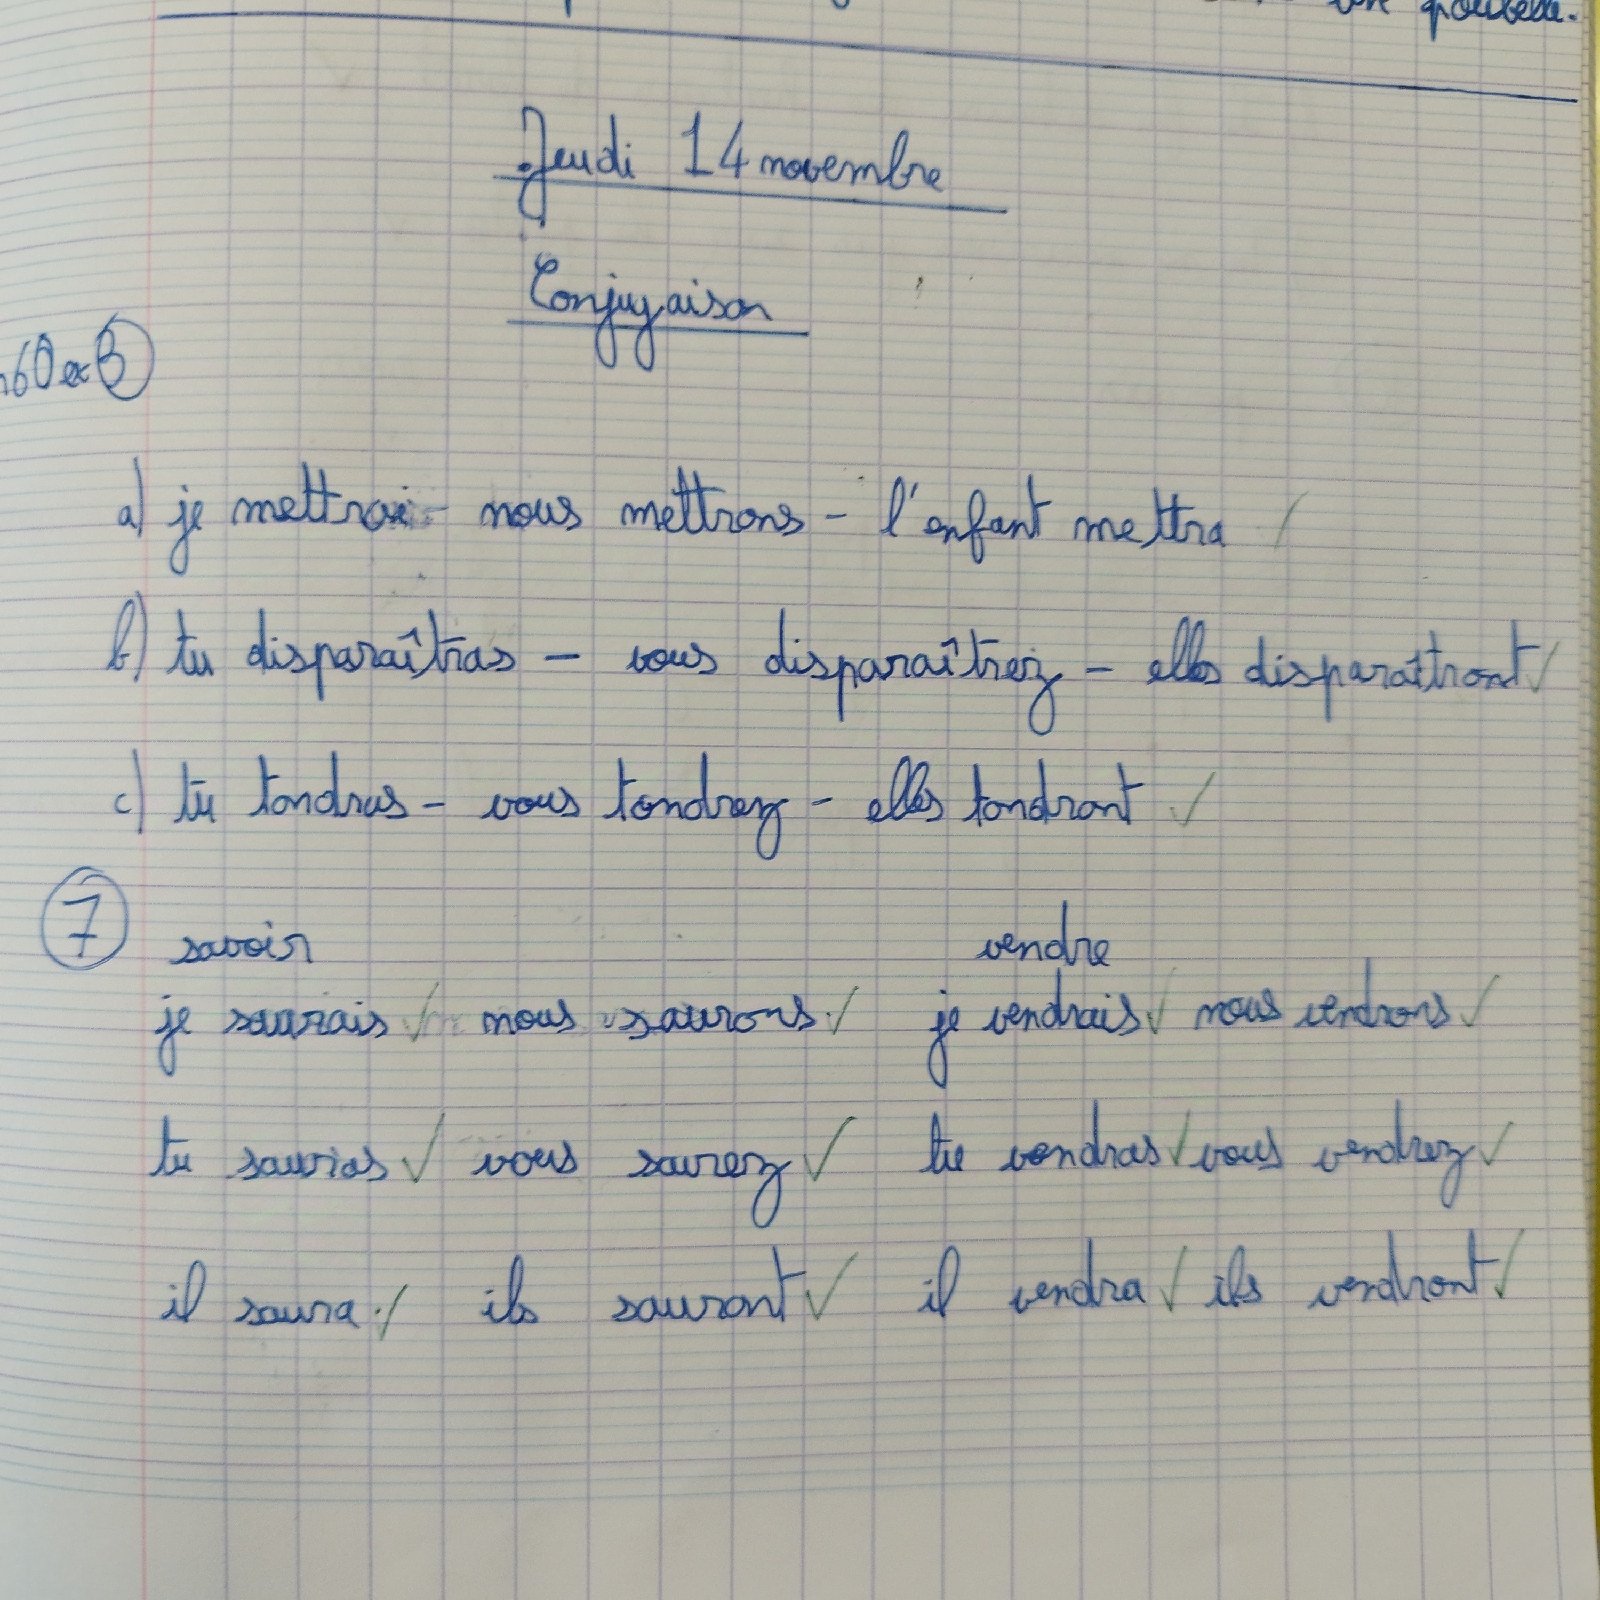 poubelle.
Jeudi 14 novembre
Conjugaison
60 ex 3
a) je mettrai - nous mettrons - l'enfant mettra
b) tu disparaîtras - vous disparaîtrez - elles disparaîtront
c) tu tondras - vous tondrez - elles tondront
7 savoir vendre
je saurais nous saurons je vendrais nous vendrons
tu sauras vous saurez tu vendras vous vendrez
il saura ils sauront il vendra ils vendront